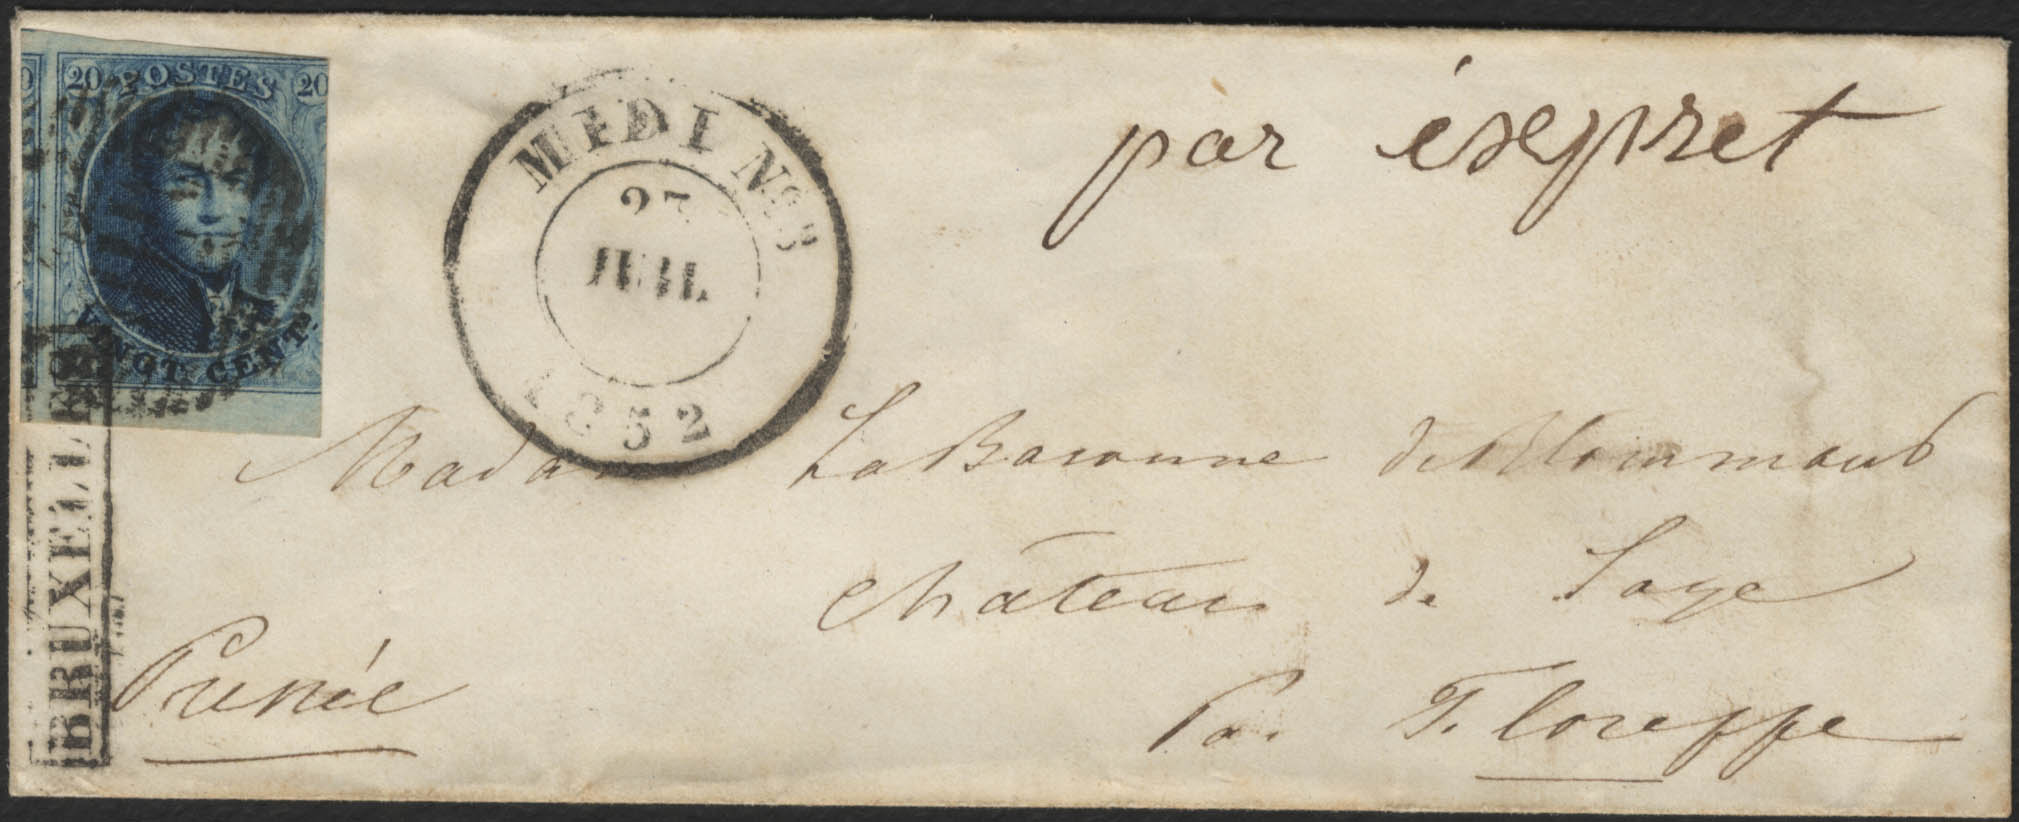 20 POSTES 20
VINGT CENT.
MIDI Nº 3
27
JUIL
1852
BRUXELLES
par éxspret
Madame La Baronne de
Château de
Par Floreffe